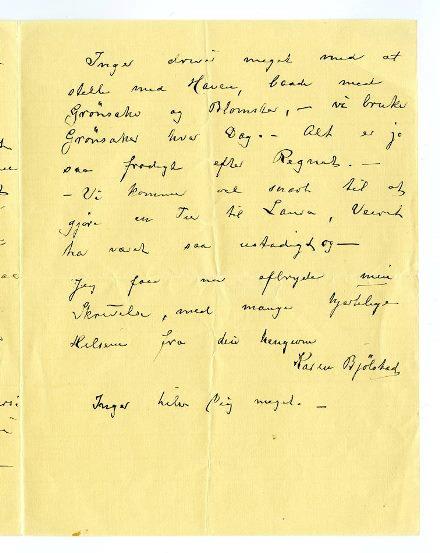 Inger driver meget med at
stelle med Haven, baade med
Grönsaker og Blomster, – vi bruker
Grönsaker hver Dag. – Alt er jo
saa frodigt efter Regnet. –
– Vi kommer vel snart til at
gjøre en Tur til Laura, Veiret
har været saa ustadigt og –
Jeg faar nu afbryde min
Skrivelse, med mange hjertelige
Hilsener fra din hengivne
Karen Bjölstad
Inger hilser Dig meget. –